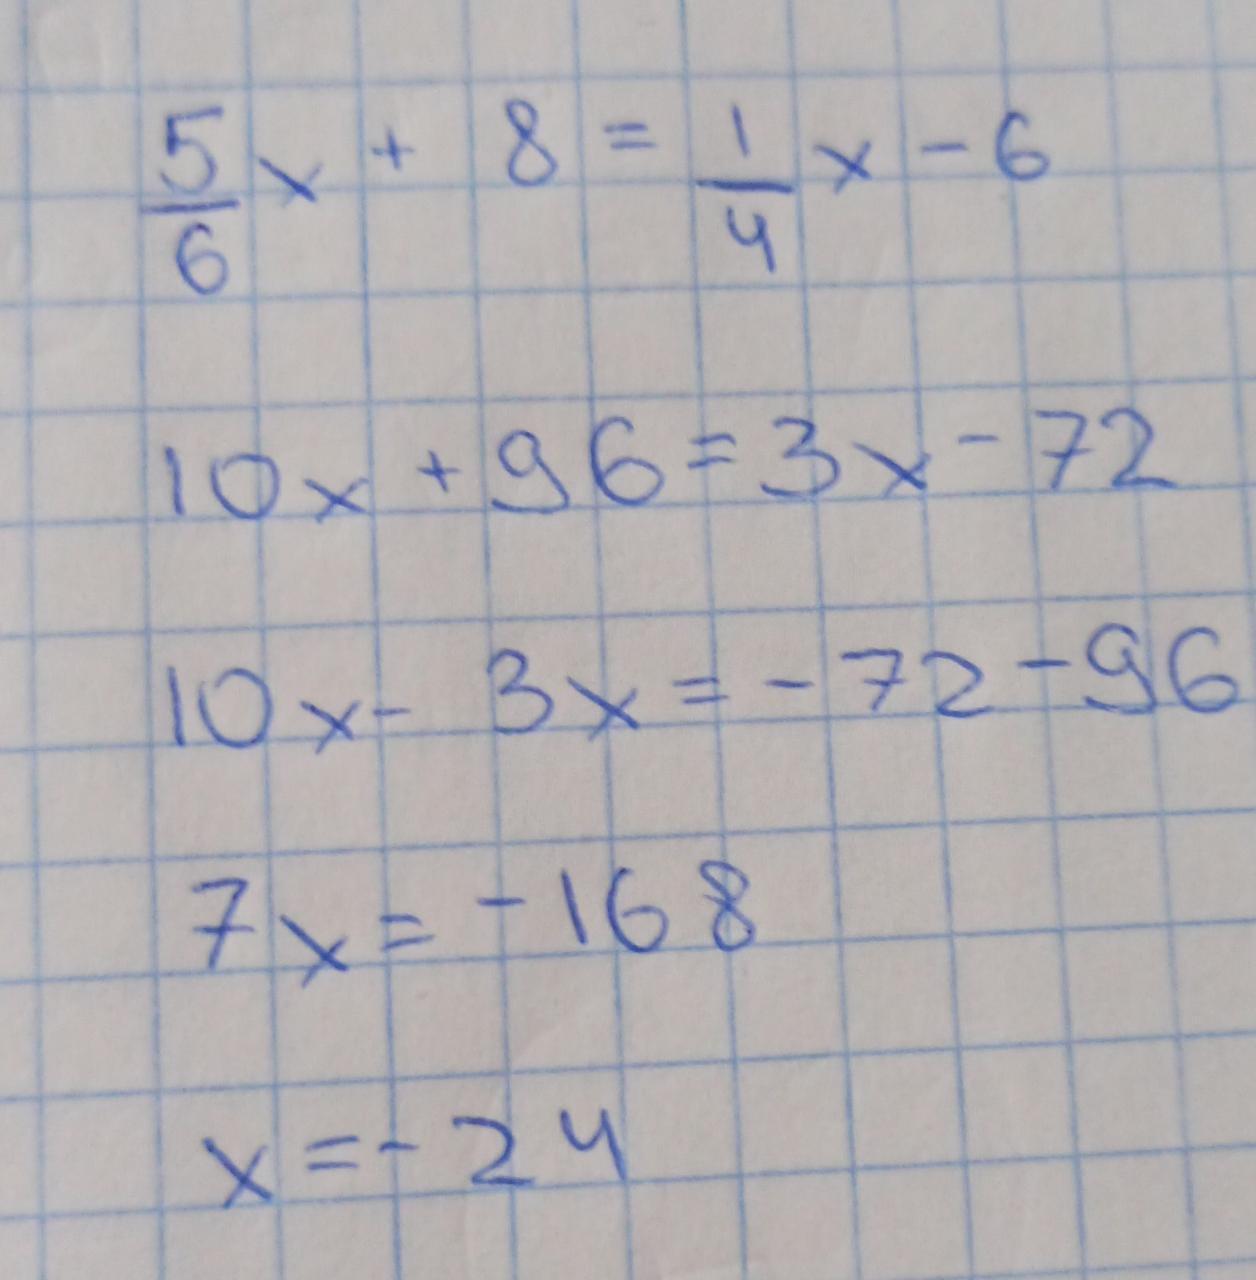 5/6 x + 8 = 1/4 x - 6
10x + 96 = 3x - 72
10x - 3x = - 72 - 96
7x = - 168
x = - 24